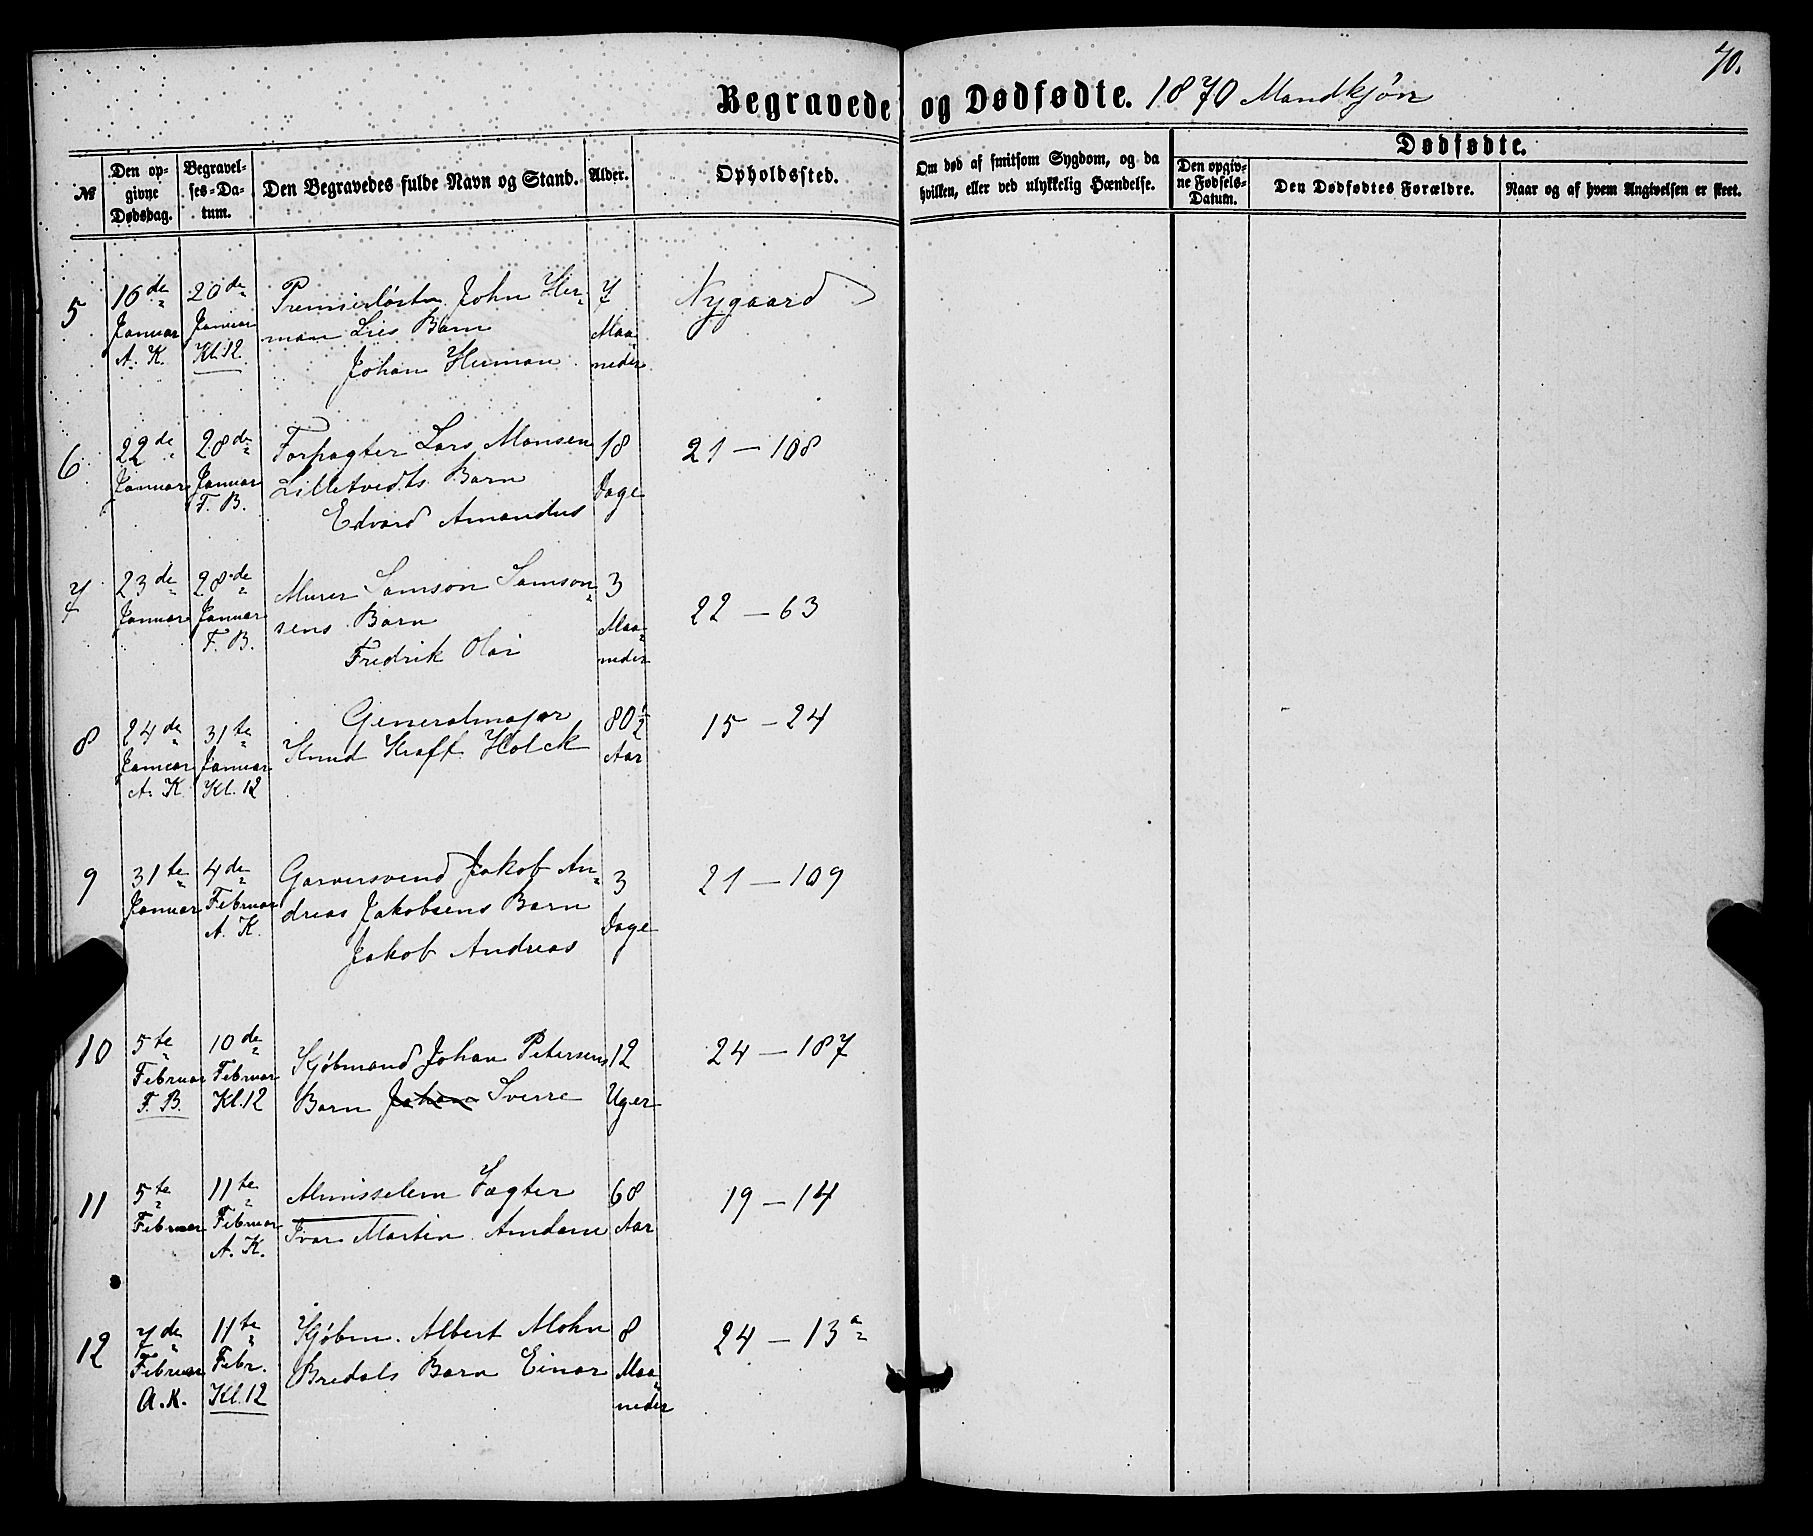 70.
Begravede og Dødfødte. 1870 Mandkjøn
Dødfødte.
№
Den op-
givne
Dødsdag.
Begravel-
ses-Da-
tum.
Den Begravedes fulde Navn og Stand.
Alder.
Opholdssted.
Om død af smitsom Sygdom, og da
hvilken, eller ved ulykkelig Hændelse.
Den opgiv-
ne Fødsels-
Datum.
Den Dødfødtes Forældre.
Naar og af hvem Angivelsen er skeet.
5
16de
Januar
A. K.
20de
Januar
Kl. 12
Premierløitn. John Her-
man Lies Barn
Johan Herman
7
Maa-
neder
Nygaard
6
22de
Januar
28de
Januar
F. B.
Forpagter Lars Monsen
Lilletvedts Barn
Edvard Amandus
18
Dage
21 — 108
7
23de
Januar
28de
Januar
F. B.
Murer Samson Samson-
sens Barn
Fredrik Olai
3
Maa-
neder
22 — 63
8
24de
Januar
A. K.
31te
Januar
Kl. 12
Generalmajor
Knud Kraft Holck
80 1/2
Aar
15 — 24
9
31te
Januar
4de
Februar
A. K.
Garversvend Jakob An-
dreas Jakobsens Barn
Jakob Andreas
3
Dage
21 — 109
10
5te
Februar
F. B.
10de
Februar
Kl. 12
Kjøbmand Johan Petersens
Barn Johan Sverre
12
Uger
24 — 187
11
5te
Februar
11te
Februar
A. K.
Almisselem Vægter
Ivar Martin Amdam
68
Aar
19 — 14
12
7de
Februar
A. K.
11te
Febr.
Kl. 12
Kjøbm. Albert Mohn
Bredals Barn Einar
8
Maa-
neder
24 — 13a